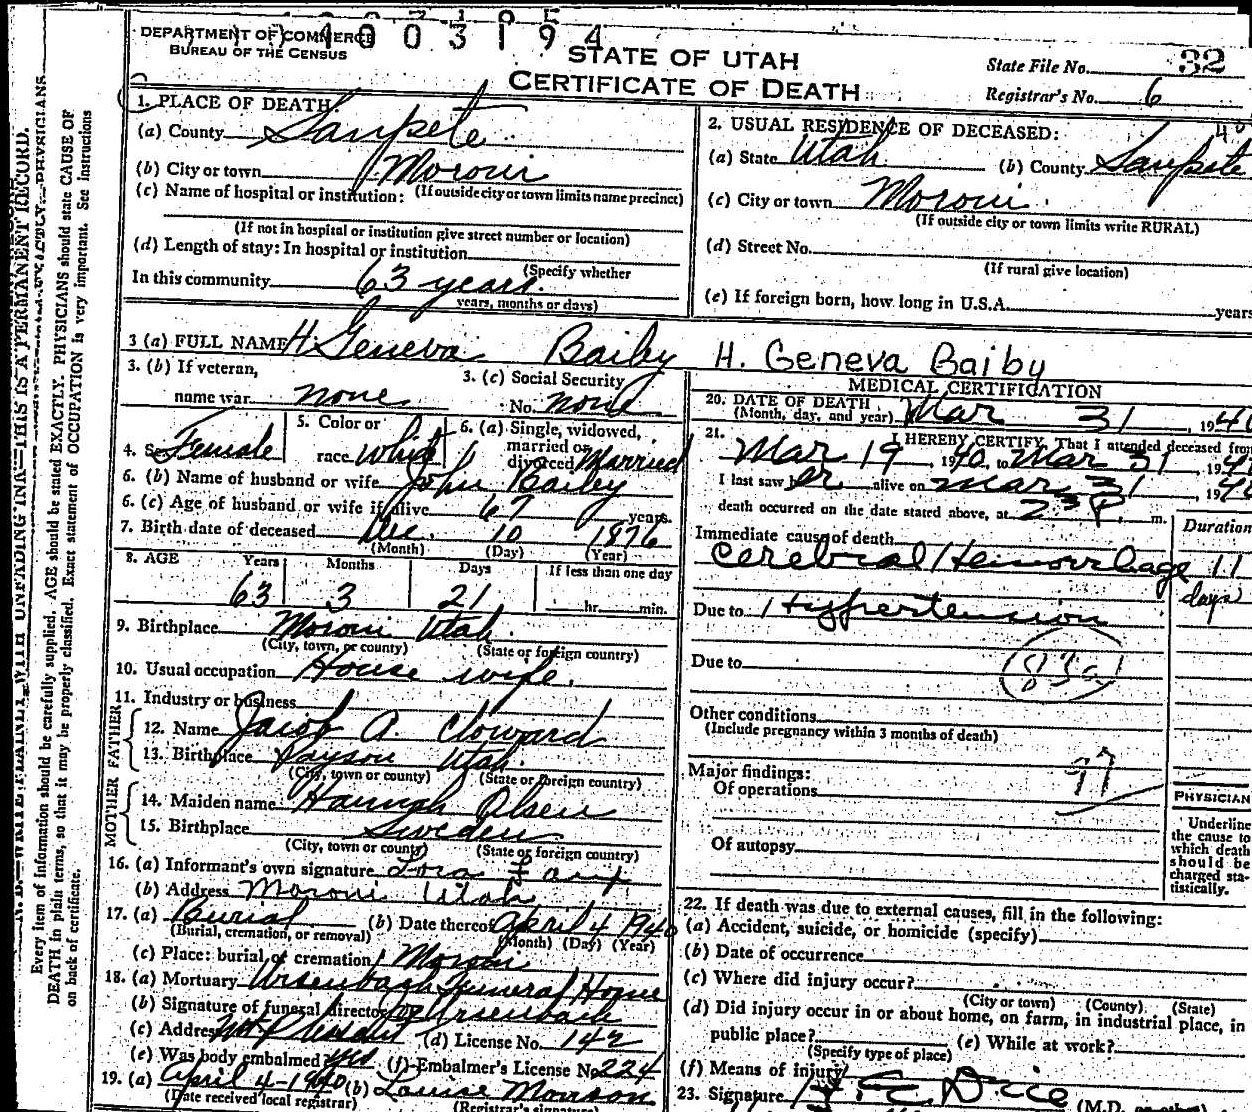 1003194
DEPARTMENT OF COMMERCE
BUREAU OF THE CENSUS
STATE OF UTAH
CERTIFICATE OF DEATH
State File No. 32
Registrar's No. 6
1. PLACE OF DEATH
(a) County Sanpete
(b) City or town Moroni
(If outside city or town limits name precinct)
(c) Name of hospital or institution:
(If not in hospital or institution give street number or location)
(d) Length of stay: In hospital or institution
(Specify whether
In this community 63 years.
years, months or days)
2. USUAL RESIDENCE OF DECEASED:
(a) State Utah (b) County Sanpete
(c) City or town Moroni
(If outside city or town limits write RURAL)
(d) Street No.
(If rural give location)
(e) If foreign born, how long in U.S.A. years
3 (a) FULL NAME H. Geneva Baiby H. Geneva Baiby
3. (b) If veteran,
name war none
3. (c) Social Security
No. none
4. Sex Female
5. Color or
race White
6. (a) Single, widowed,
married or
divorced Married
6. (b) Name of husband or wife John Bailey
6. (c) Age of husband or wife if alive 67 years.
7. Birth date of deceased Dec. 10 1876
(Month) (Day) (Year)
8. AGE Years Months Days If less than one day
63 3 21 hr. min.
9. Birthplace Moroni Utah
(City, town, or county) (State or foreign country)
10. Usual occupation House wife.
11. Industry or business
FATHER
12. Name Jacob A. Cloward
13. Birthplace Payson Utah
(City, town or county) (State or foreign country)
MOTHER
14. Maiden name Hannah Olsen
15. Birthplace Sweden
(City, town or county) (State or foreign country)
16. (a) Informant's own signature Lora
(b) Address Moroni Utah
17. (a) Burial (b) Date thereof April 4 1940
(Burial, cremation, or removal) (Month) (Day) (Year)
(c) Place: burial or cremation Moroni
18. (a) Mortuary Ursenbach Funeral Home
(b) Signature of funeral director Ursenbach
(c) Address Mt Pleasant (d) License No. 142
(e) Was body embalmed yes (f) Embalmer's License No 224
19. (a) April 4-1940 (b) Louise Morrison
(Date received local registrar) (Registrar's signature)
MEDICAL CERTIFICATION
20. DATE OF DEATH
(Month, day, and year) Mar 31, 1940
21. I HEREBY CERTIFY, That I attended deceased from
Mar 19, 1940, to Mar 31, 1940
I last saw her alive on Mar 31, 1940
death occurred on the date stated above, at 2 30 P. m.
Duration
Immediate cause of death
Cerebral Hemorrhage 11 days
Due to Hypertension
Due to
83a
Other conditions
(Include pregnancy within 3 months of death)
Major findings:
Of operations
97
Of autopsy
PHYSICIAN
Underline
the cause to
which death
should be
charged sta-
tistically.
22. If death was due to external causes, fill in the following:
(a) Accident, suicide, or homicide (specify)
(b) Date of occurrence
(c) Where did injury occur?
(City or town) (County) (State)
(d) Did injury occur in or about home, on farm, in industrial place, in
public place? (e) While at work?
(Specify type of place)
(f) Means of injury
23. Signature
(M.D. or other)
Every item of information should be carefully supplied. AGE should be stated EXACTLY. PHYSICIANS should state CAUSE OF
DEATH in plain terms, so that it may be properly classified. Exact statement of OCCUPATION is very important. See Instructions
on back of certificate.